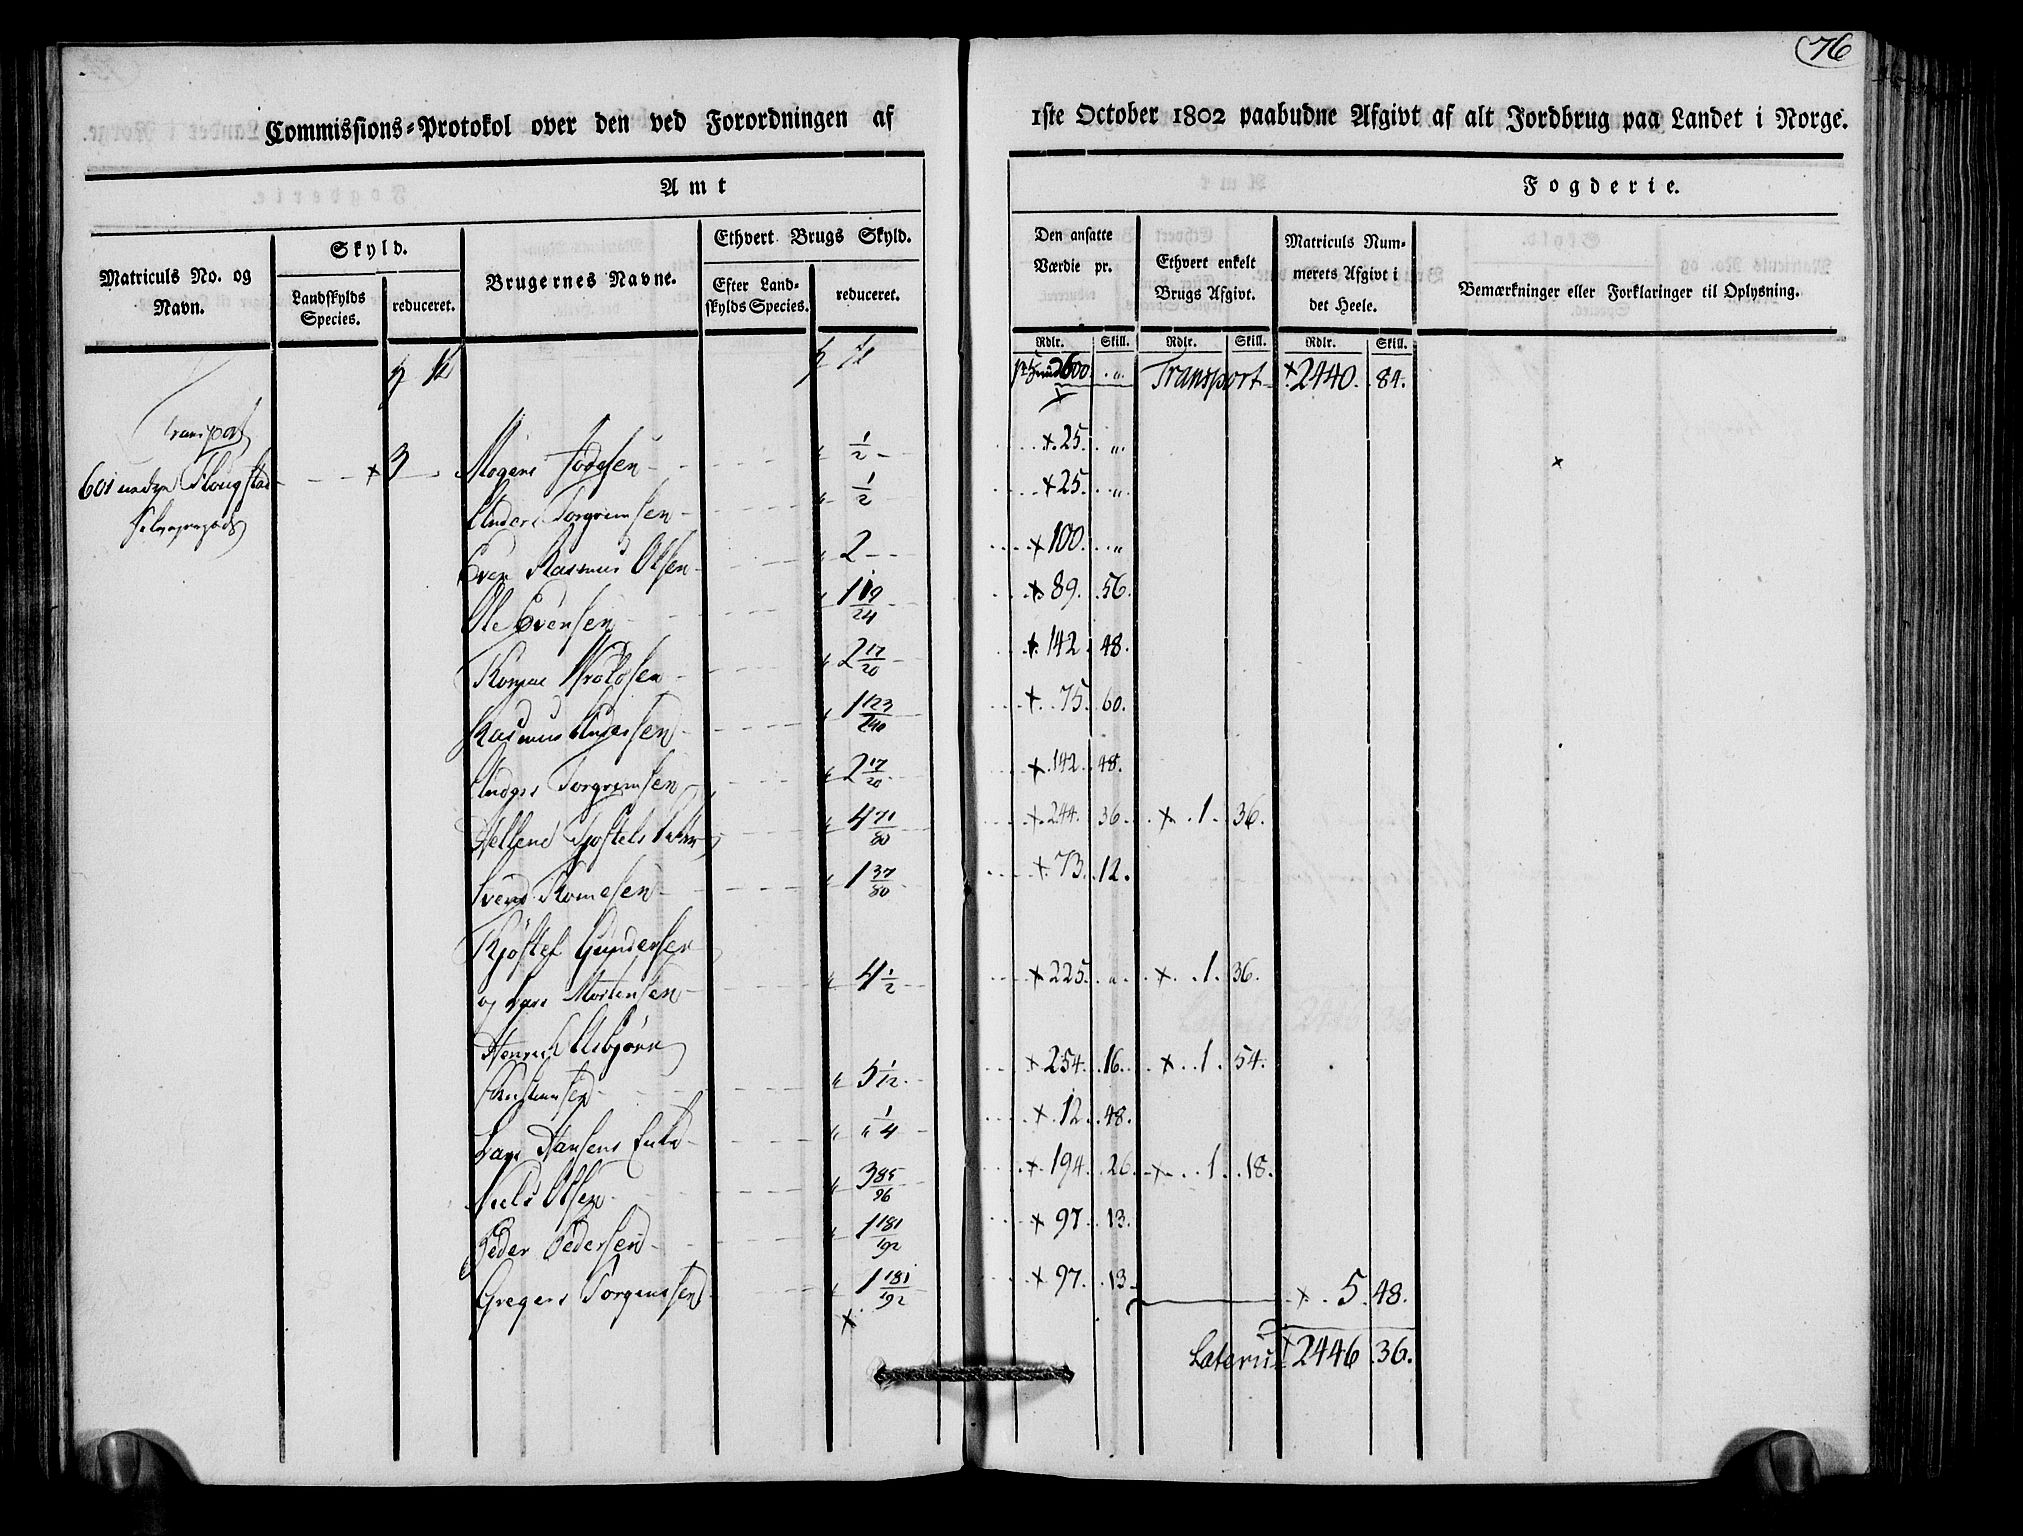 76
Commissions-Protokol over den ved Forordningen af 1ste October 1802 paabudne Afgivt af alt Jordbrug paa Landet i Norge.
Amt Fogderie.
Matriculs No. og Navn.
Skyld.
Landskylds Species.
reduceret.
Brugernes Navne.
Ethvert Brugs Skyld.
Efter Landskylds Species.
reduceret.
Den ansatte Værdie pr.
Ethvert enkelt Brugs Afgivt.
Matriculs Nummerets Afgivt i det Heele.
Bemærkninger eller Forklaringer til Oplysning.
Rdlr. Skill. Rdlr. Skill. Rdlr. Skill.
600 „ Transport × 2440. 84.
Transport
601 × 3 Mogens 1/2 × 25. „
Anders Torgrimsen 1/2 × 25. „
Even Rasmus Olsen 2 × 100. „
Ole Evensen 1 19/24 × 89. 56.
2 17/20 × 142 48.
Rasmus Andersen 1 123/240 × 75. 60.
Anders Torgrimsen 2 17/20 × 142. 48.
Hellene 4 71/80 × 244. 36 × 1. 36.
Svend 1 37/80 × 73. 12.
Kjøstel Gundersen
og Lars Mortensen 4 1/2 × 225. „ × 1. 36.
Henrich Asbjørn
Christiansen 5 1/12 × 254. 16. × 1. 54.
Lars Hansens Enke 1/4 × 12. 48.
Niels Olsen 3 85/96 × 194. 26. × 1. 18.
Peder Pedersen 1 181/192 × 97. 13.
Gregers Torgersen 1 181/192 × 97. 13 × 5. 48.
×
Lateris × 2446 36.